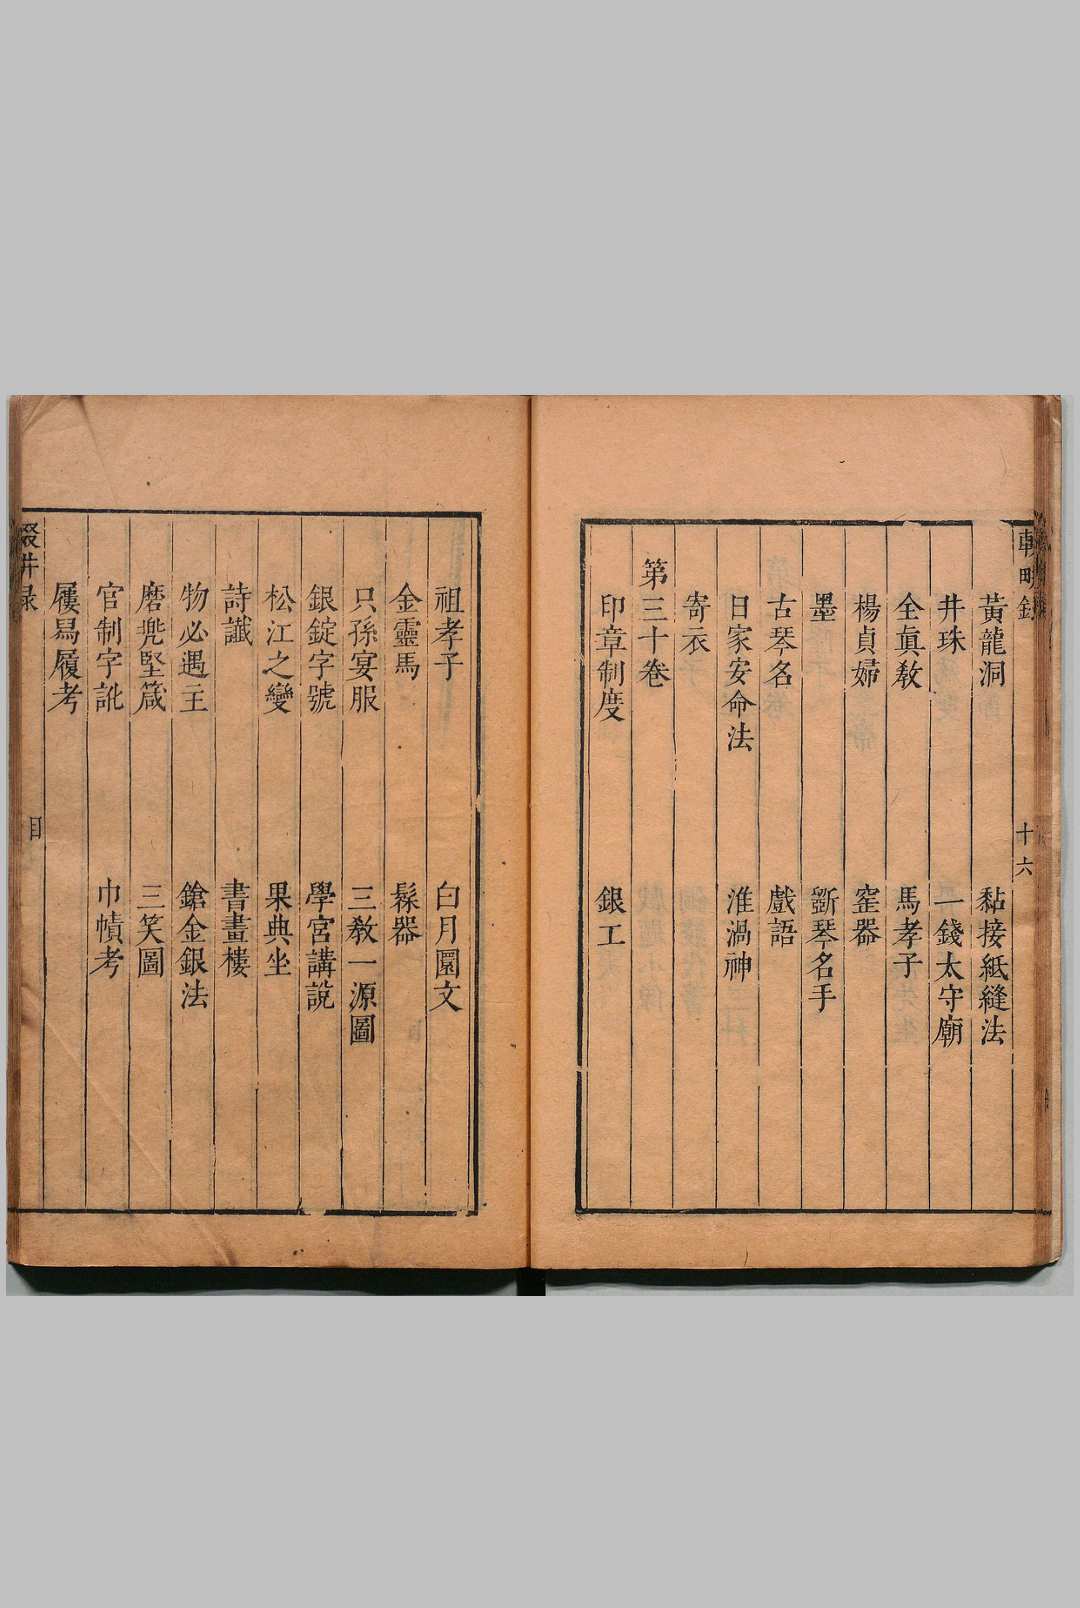 黃龍洞　黏接紙縫法
井珠　一錢太守廟
全眞敎　馬孝子
楊貞婦　窰器
墨　斵琴名手
古琴名　戲語
日家安命法　淮渦神
寄衣
第三十卷
印章制度　銀工
祖孝子　白月圜文
金靈馬　髹器
只孫宴服　三敎一源圖
銀錠字號　學宮講說
松江之變　果典坐
詩讖　書畫樓
物必遇主　鎗金銀法
磨兠堅箴　三笑圖
官制字訛　巾幘考
屨舄履考
目
十六